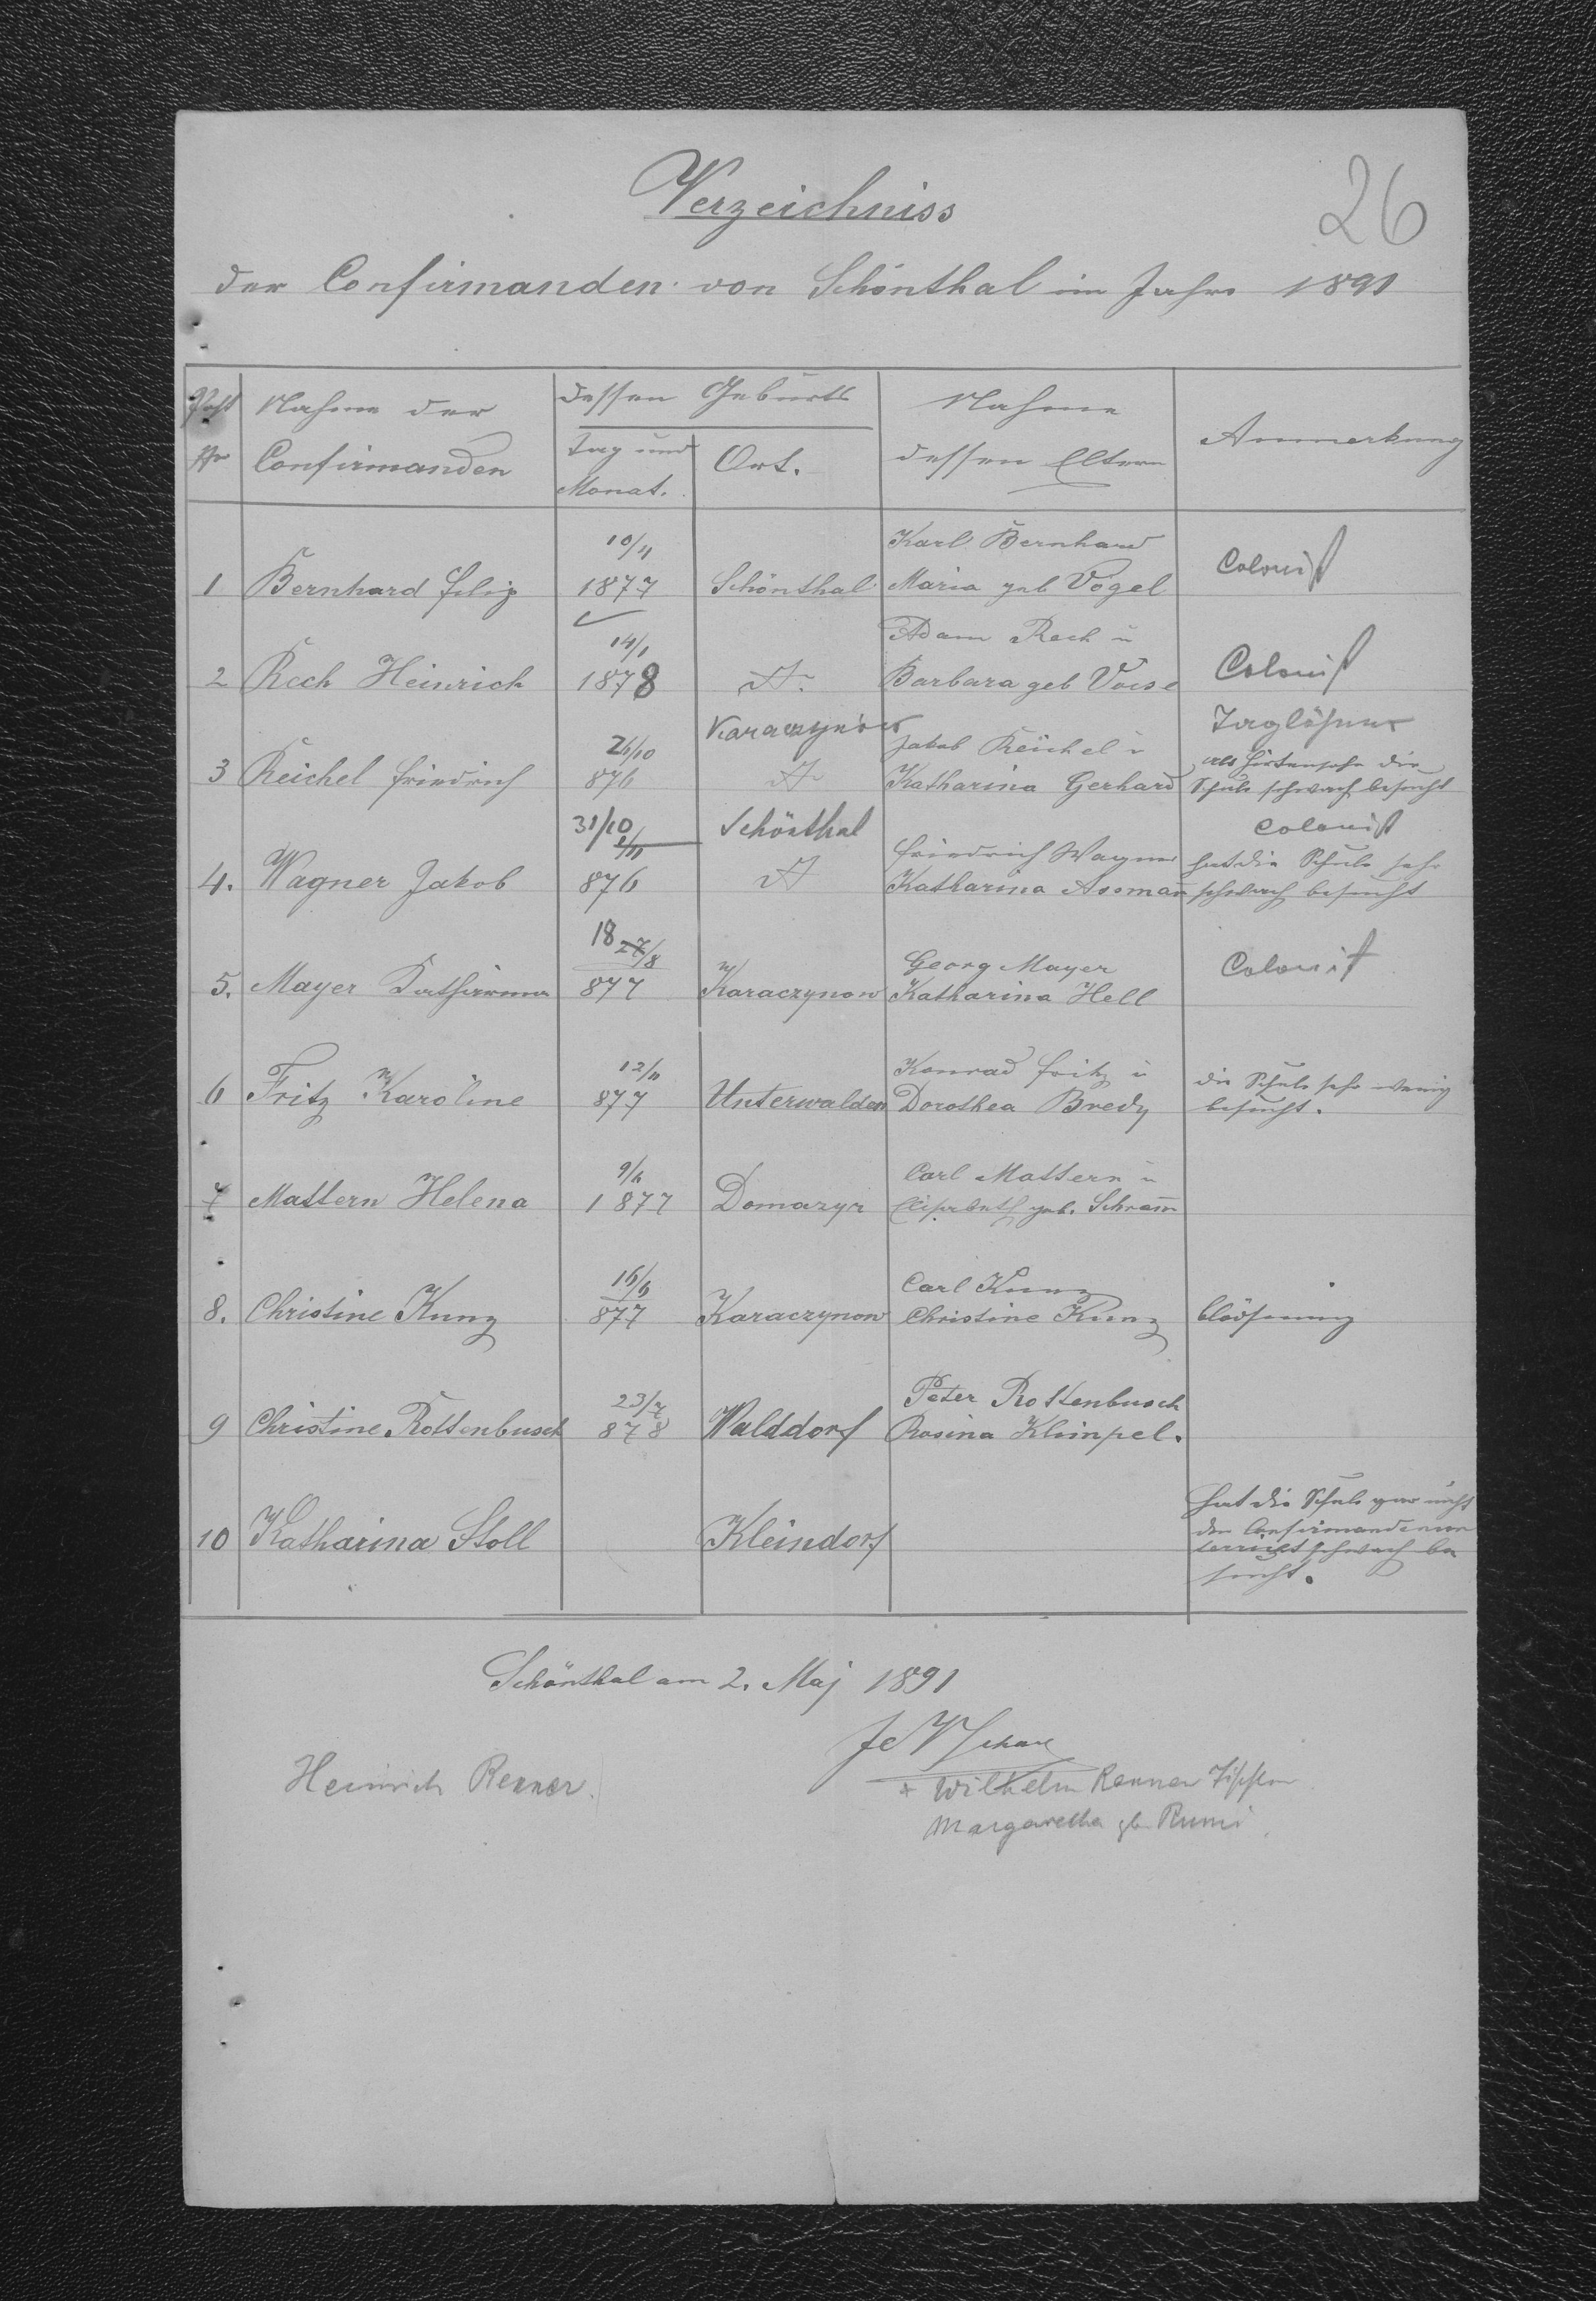 26
Verzeichniss
der Confirmanden von Schönthal im Jahre 1891
Post Nahme der dessen Geburts Nahme Anmerkung
Nr Confirmanden Tag und Ort. dessen Eltern
Monat.
10/11 Karl Bernhard
1 Bernhard Filip 1877 Schönthal Maria geb Vogel Colonist
14/1 Adam Rech u
2 Rech Heinrich 1878 Barbara geb Colonist
Karaczynow Taglöhner
26/10 Jakob Reichel u als Hirtensohn die
3 Reichel Friedrich 876 Katharina Gerhard Schule schwach besucht
31/10 Schönthal Colonist
Friedrich Wagner hat die Schule sehr
4. Wagner Jakob 876 Katharina Assmañ schwach besucht
18 27/8 Georg Mayer
5. Mayer Katharina 877 Karaczynow Katharina Hell Colonist
12/11 Konrad Fritz u die Schule sehr wenig
6 Fritz Karoline 877 Unterwalden Dorothea Bredy besucht.
9/6 Carl Mattern u
7 Mattern Helena 1877 Domazyr Elisabeth geb. Schram̄
16/6 Carl Kunz
8. Christine Kunz 877 Karaczynow Christine Kunz blödsinnig
23/7 Peter Rottenbusch
9 Christine Rottenbusch 878 Walddorf Rosina Klimpel.
hat die Schule gar nicht
10 Katharina Stoll Kleindorf den Confirmandenun
terricht schwach be
sucht.
Schönthal am 2. Maj 1891
Heinrich Renner.
* Wilhelm Renner
Margaretha